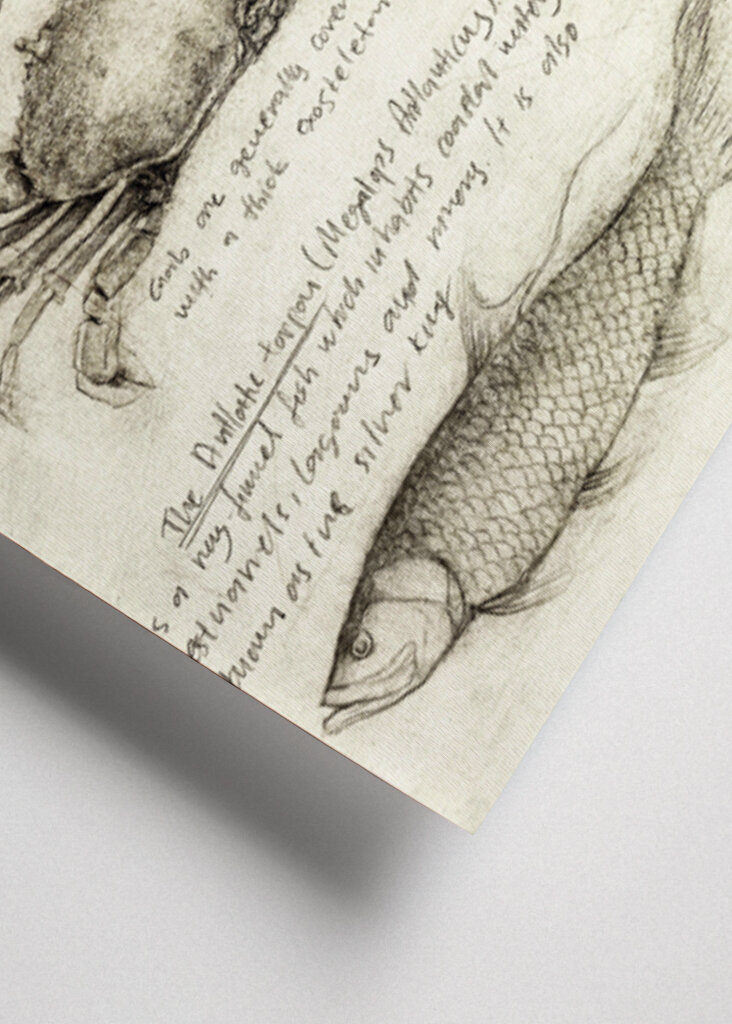 Crabs are generally cover
with a thick exoskeleton
The Atlantic tarpon (Megalops Atlanticus)
s a ray finned fish which inhabits coastal waters
lagoons and rivers. It is also
known as the silver king